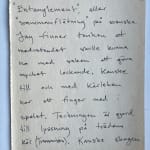 Entanglement" eller
"sammanflätning" på svenska
Jag finner tanken att
medvetandet skulle kunna
ha med saken att göra
mycket lockande. Kanske
till och med Kärleken
har ett finger med
spelet. Teckningen är gjord
till lyssning på träden
kör Kanske skogen